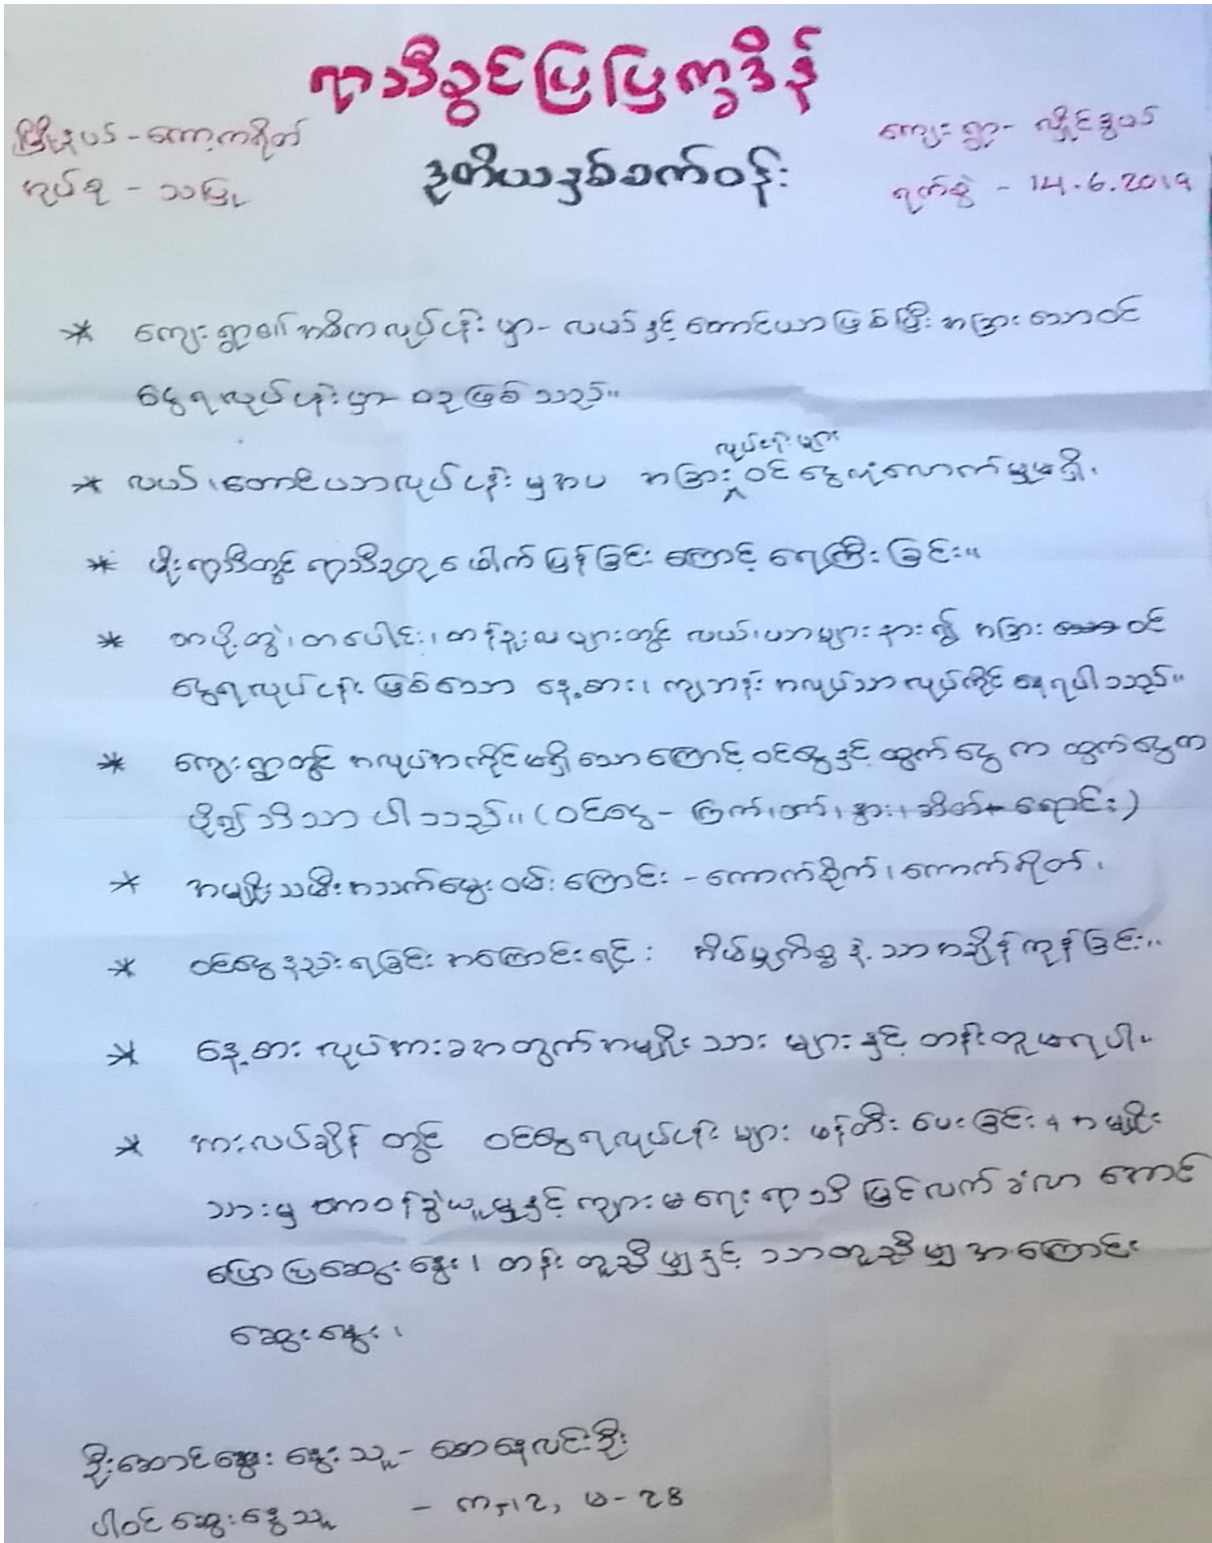 ရာသီခွင်ပြပြက္ခဒိန်
မြို့နယ် - ကော့ကရိတ်
ကျေးရွာ - လှိုင်ခွပဒ်
ဒုတိယနှစ်ဝက်ဝန်း
အုပ်စု - သမြု
ရက်စွဲ - 14.6.2019
* ကျေးရွာ၏ အဓိကလုပ်ငန်းမှာ - လယ်နှင့် တောင်ယာဖြစ်ပြီး အခြားသောဝင်
ငွေရလုပ်ငန်းမှာ ဝဥဖြစ်သည်။
လုပ်ငန်းများ
* လယ်၊တောင်ယာလုပ်ငန်းမှအပ အခြား ဝင်ငွေလုံလောက်မှုမရှိ၊
* မိုးရာသီတွင် ရာသီဥတုဖေါက်ပြန်ခြင်းကြောင့် ရေကြီးခြင်း။
* တပို့တွဲ၊တပေါင်း၊တန်ခူးလများတွင် လယ်၊ယာများနား၍ အခြား ဝင်
ငွေရလုပ်ငန်းဖြစ်သော နေ့စား၊ ကျဘန်းအလုပ်သာလုပ်ကိုင်နေရပါသည်။
* ကျေးရွာတွင် အလုပ်အကိုင်မရှိသောကြောင့် ဝင်ငွေနှင့် ထွက်ငွေက ထွက်ငွေက
ပို၍သိသာပါသည်။ (ဝင်ငွေ - ကြက်၊ဝက်၊နွား၊ဆိတ် ရောင်း)
* အမျိုးသမီးအသက်မွေးဝမ်းကြောင်း - ကောက်စိုက်၊ကောက်ရိတ်၊
* ဝင်ငွေနည်းရခြင်းအကြောင်းရင်း အိမ်မှုကိစ္စနဲ့သာအချိန်ကုန်ခြင်း။
* နေ့စားလုပ်အားခအတွက်အမျိုးသားများနှင့် တန်းတူမရပါ။
* အားလပ်ချိန်တွင် ဝင်ငွေရလုပ်ငန်းများ ဖန်တီးပေးခြင်း၊ အမျိုး
သားမှ တာဝန်ခွဲယူမှုနှင့် ကျားမရေးရာသိမြင်လက်ခံလာအောင်
ပြောပြဆွေးနွေး၊ တန်းတူညီမျှနှင့် သာတူညီမျှအကြောင်း
ဆွေးနွေး၊
ဦးဆောင်ဆွေးနွေးသူ - စောနေလင်းဦး
ပါဝင်ဆွေးနွေးသူ - ကျ 12, မ - 28